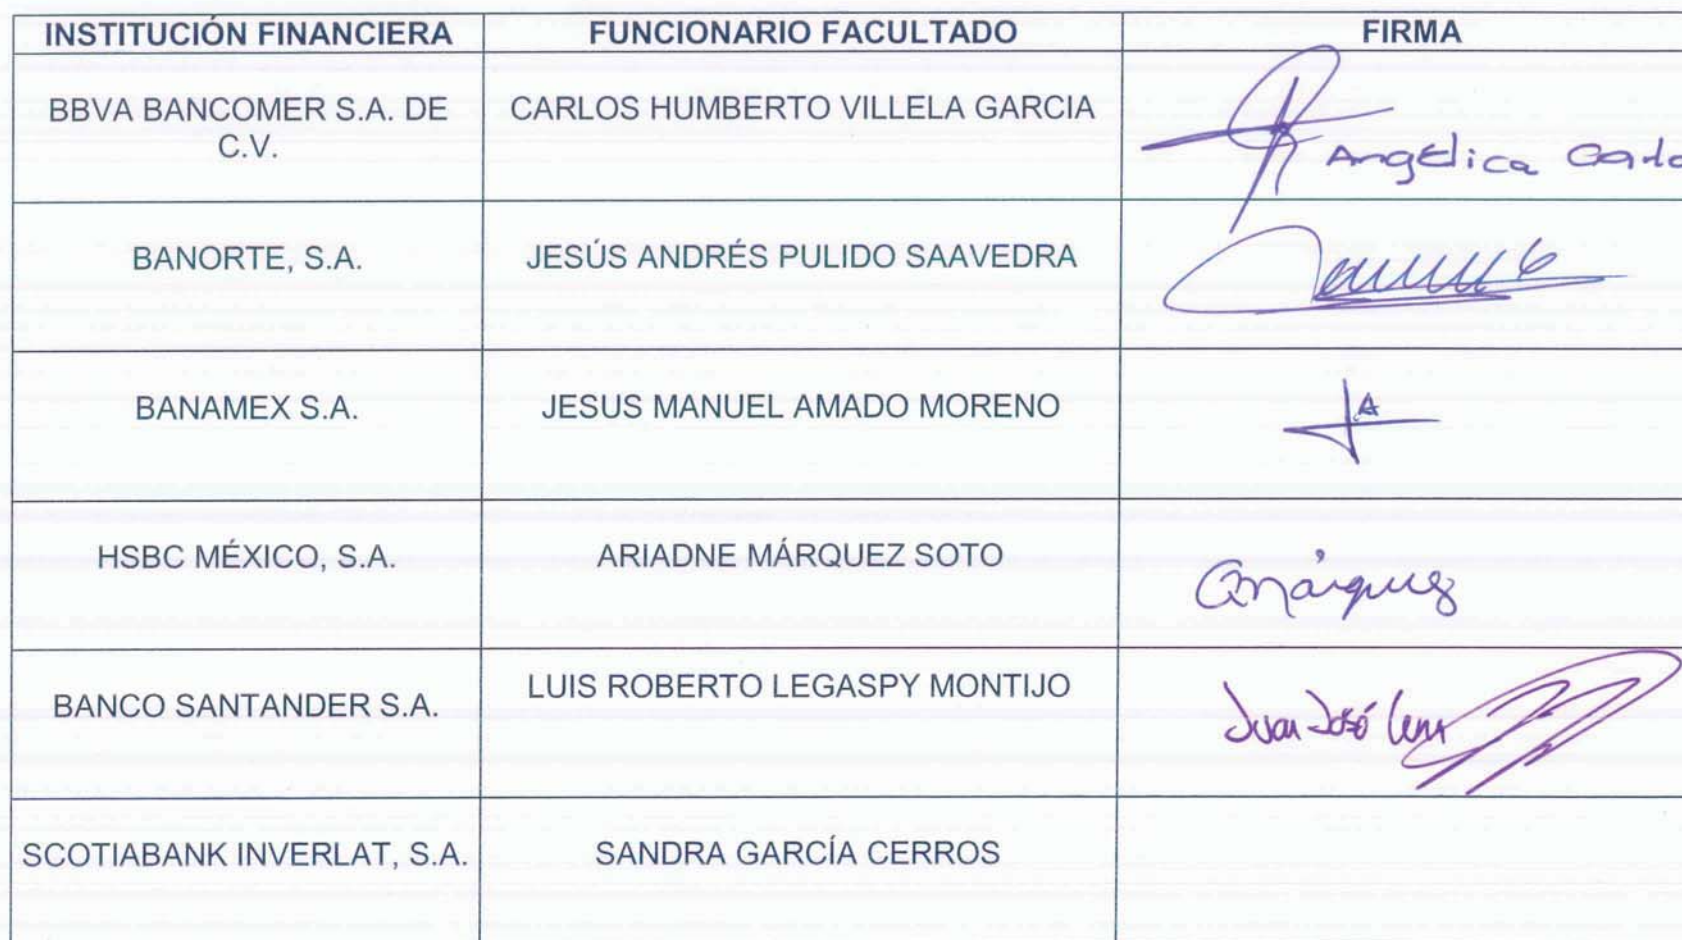 INSTITUCIÓN FINANCIERA FUNCIONARIO FACULTADO FIRMA
BBVA BANCOMER S.A. DE CARLOS HUMBERTO VILLELA GARCIA
C.V.
Angélica
BANORTE, S.A. JESÚS ANDRÉS PULIDO SAAVEDRA
BANAMEX S.A. JESUS MANUEL AMADO MORENO
HSBC MÉXICO, S.A. ARIADNE MÁRQUEZ SOTO
AMárquez
BANCO SANTANDER S.A. LUIS ROBERTO LEGASPY MONTIJO
Juan José
SCOTIABANK INVERLAT, S.A. SANDRA GARCÍA CERROS